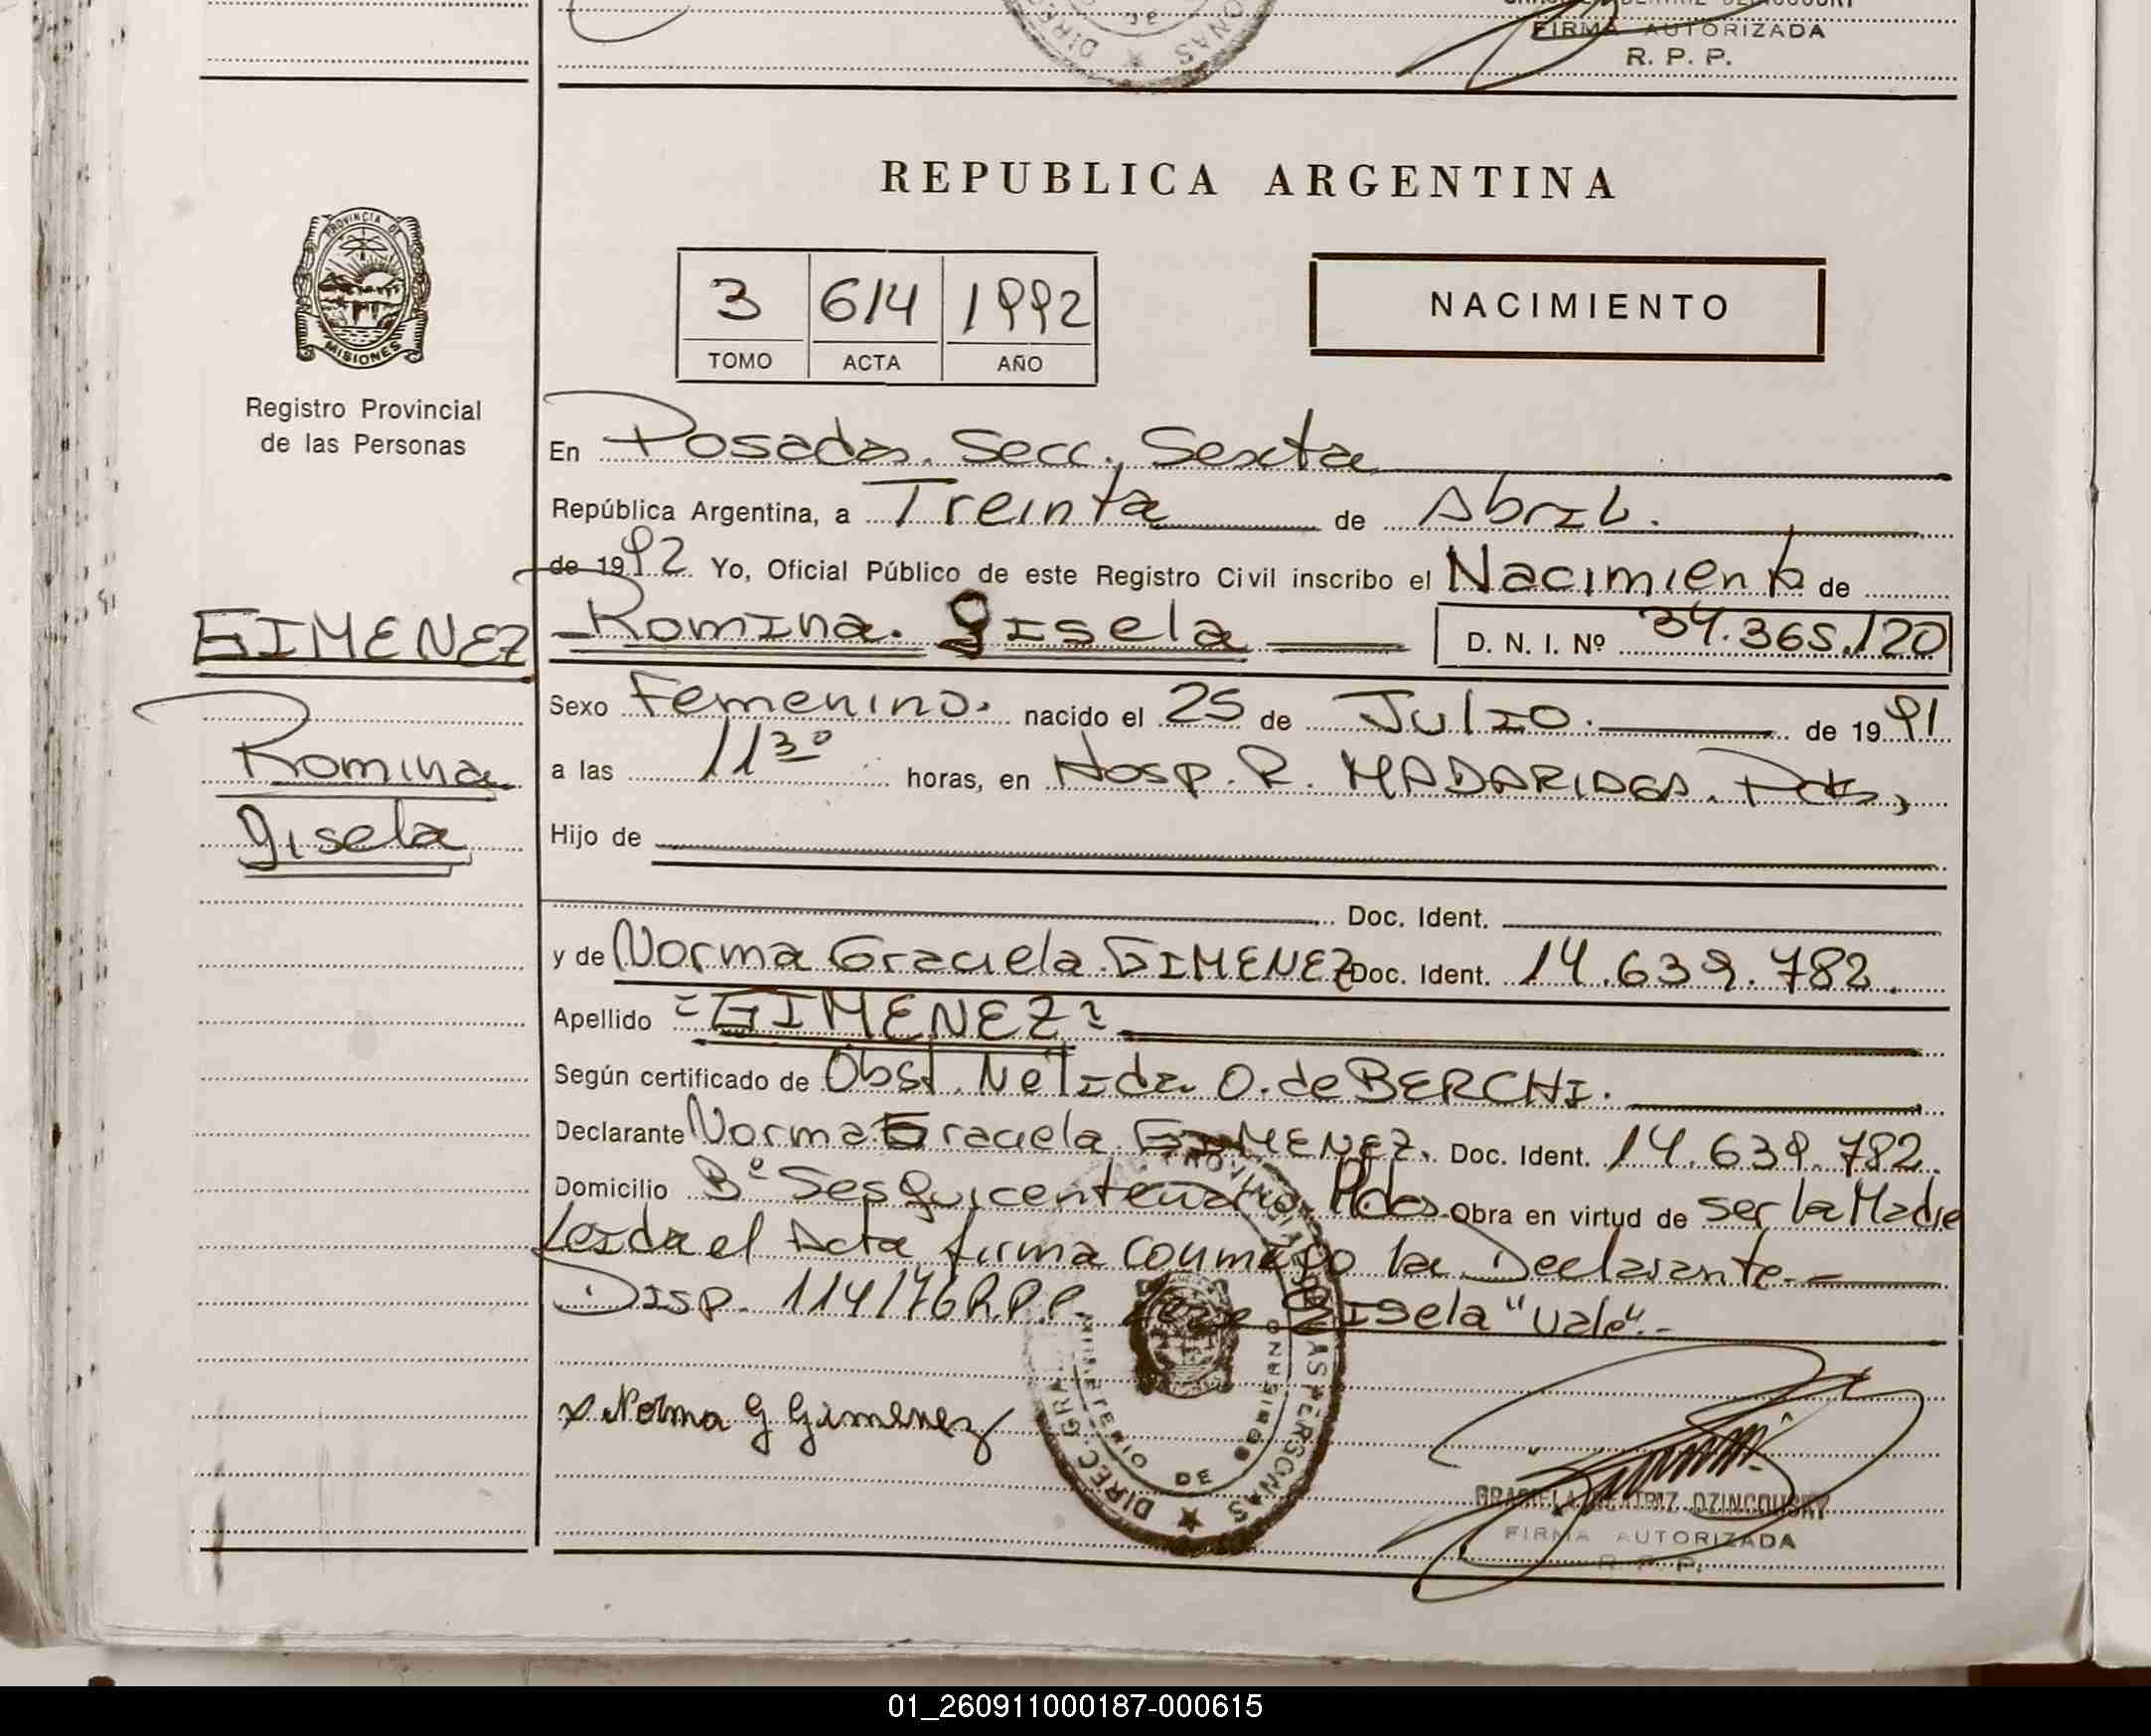 FIRMA AUTORIZADA
R. P. P.
REPUBLICA ARGENTINA
PROVINCIA DE
MISIONES
Registro Provincial
de las Personas
3 614 1992
TOMO ACTA AÑO
NACIMIENTO
En Posadas. Secc. Sexta
República Argentina, a Treinta de Abril.
de 1992 Yo, Oficial Público de este Registro Civil inscribo el Nacimiento de
GIMENEZ
Romina
Gisela
Romina. Gisela D. N. I. Nº 34.365.120
Sexo Femenino. nacido el 25 de Julio. de 1991
a las 11 30 horas, en Hosp. R. MADARIAGA. Pdas,
Hijo de
Doc. Ident.
y de Norma Graciela GIMENEZ Doc. Ident. 14.639.782.
Apellido "GIMENEZ"
Según certificado de Obst. Nelida O. de BERCHI.
Declarante Norma Graciela GIMENEZ. Doc. Ident. 14.639.782.
Domicilio Bº Sesquicentenario Pdas Obra en virtud de ser la Madre
Leida el Acta firma conmigo la Declarante.-
Disp. 114/76 R.P.P. Gisela "Vale".-
x Norma G Gimenez
DIREC. GRAL. PERSONAS
MINISTERIO DE GOBIERNO
GRACIELA BEATRIZ DZINCOUSKY
FIRMA AUTORIZADA
R. P. P.
01_260911000187-000615